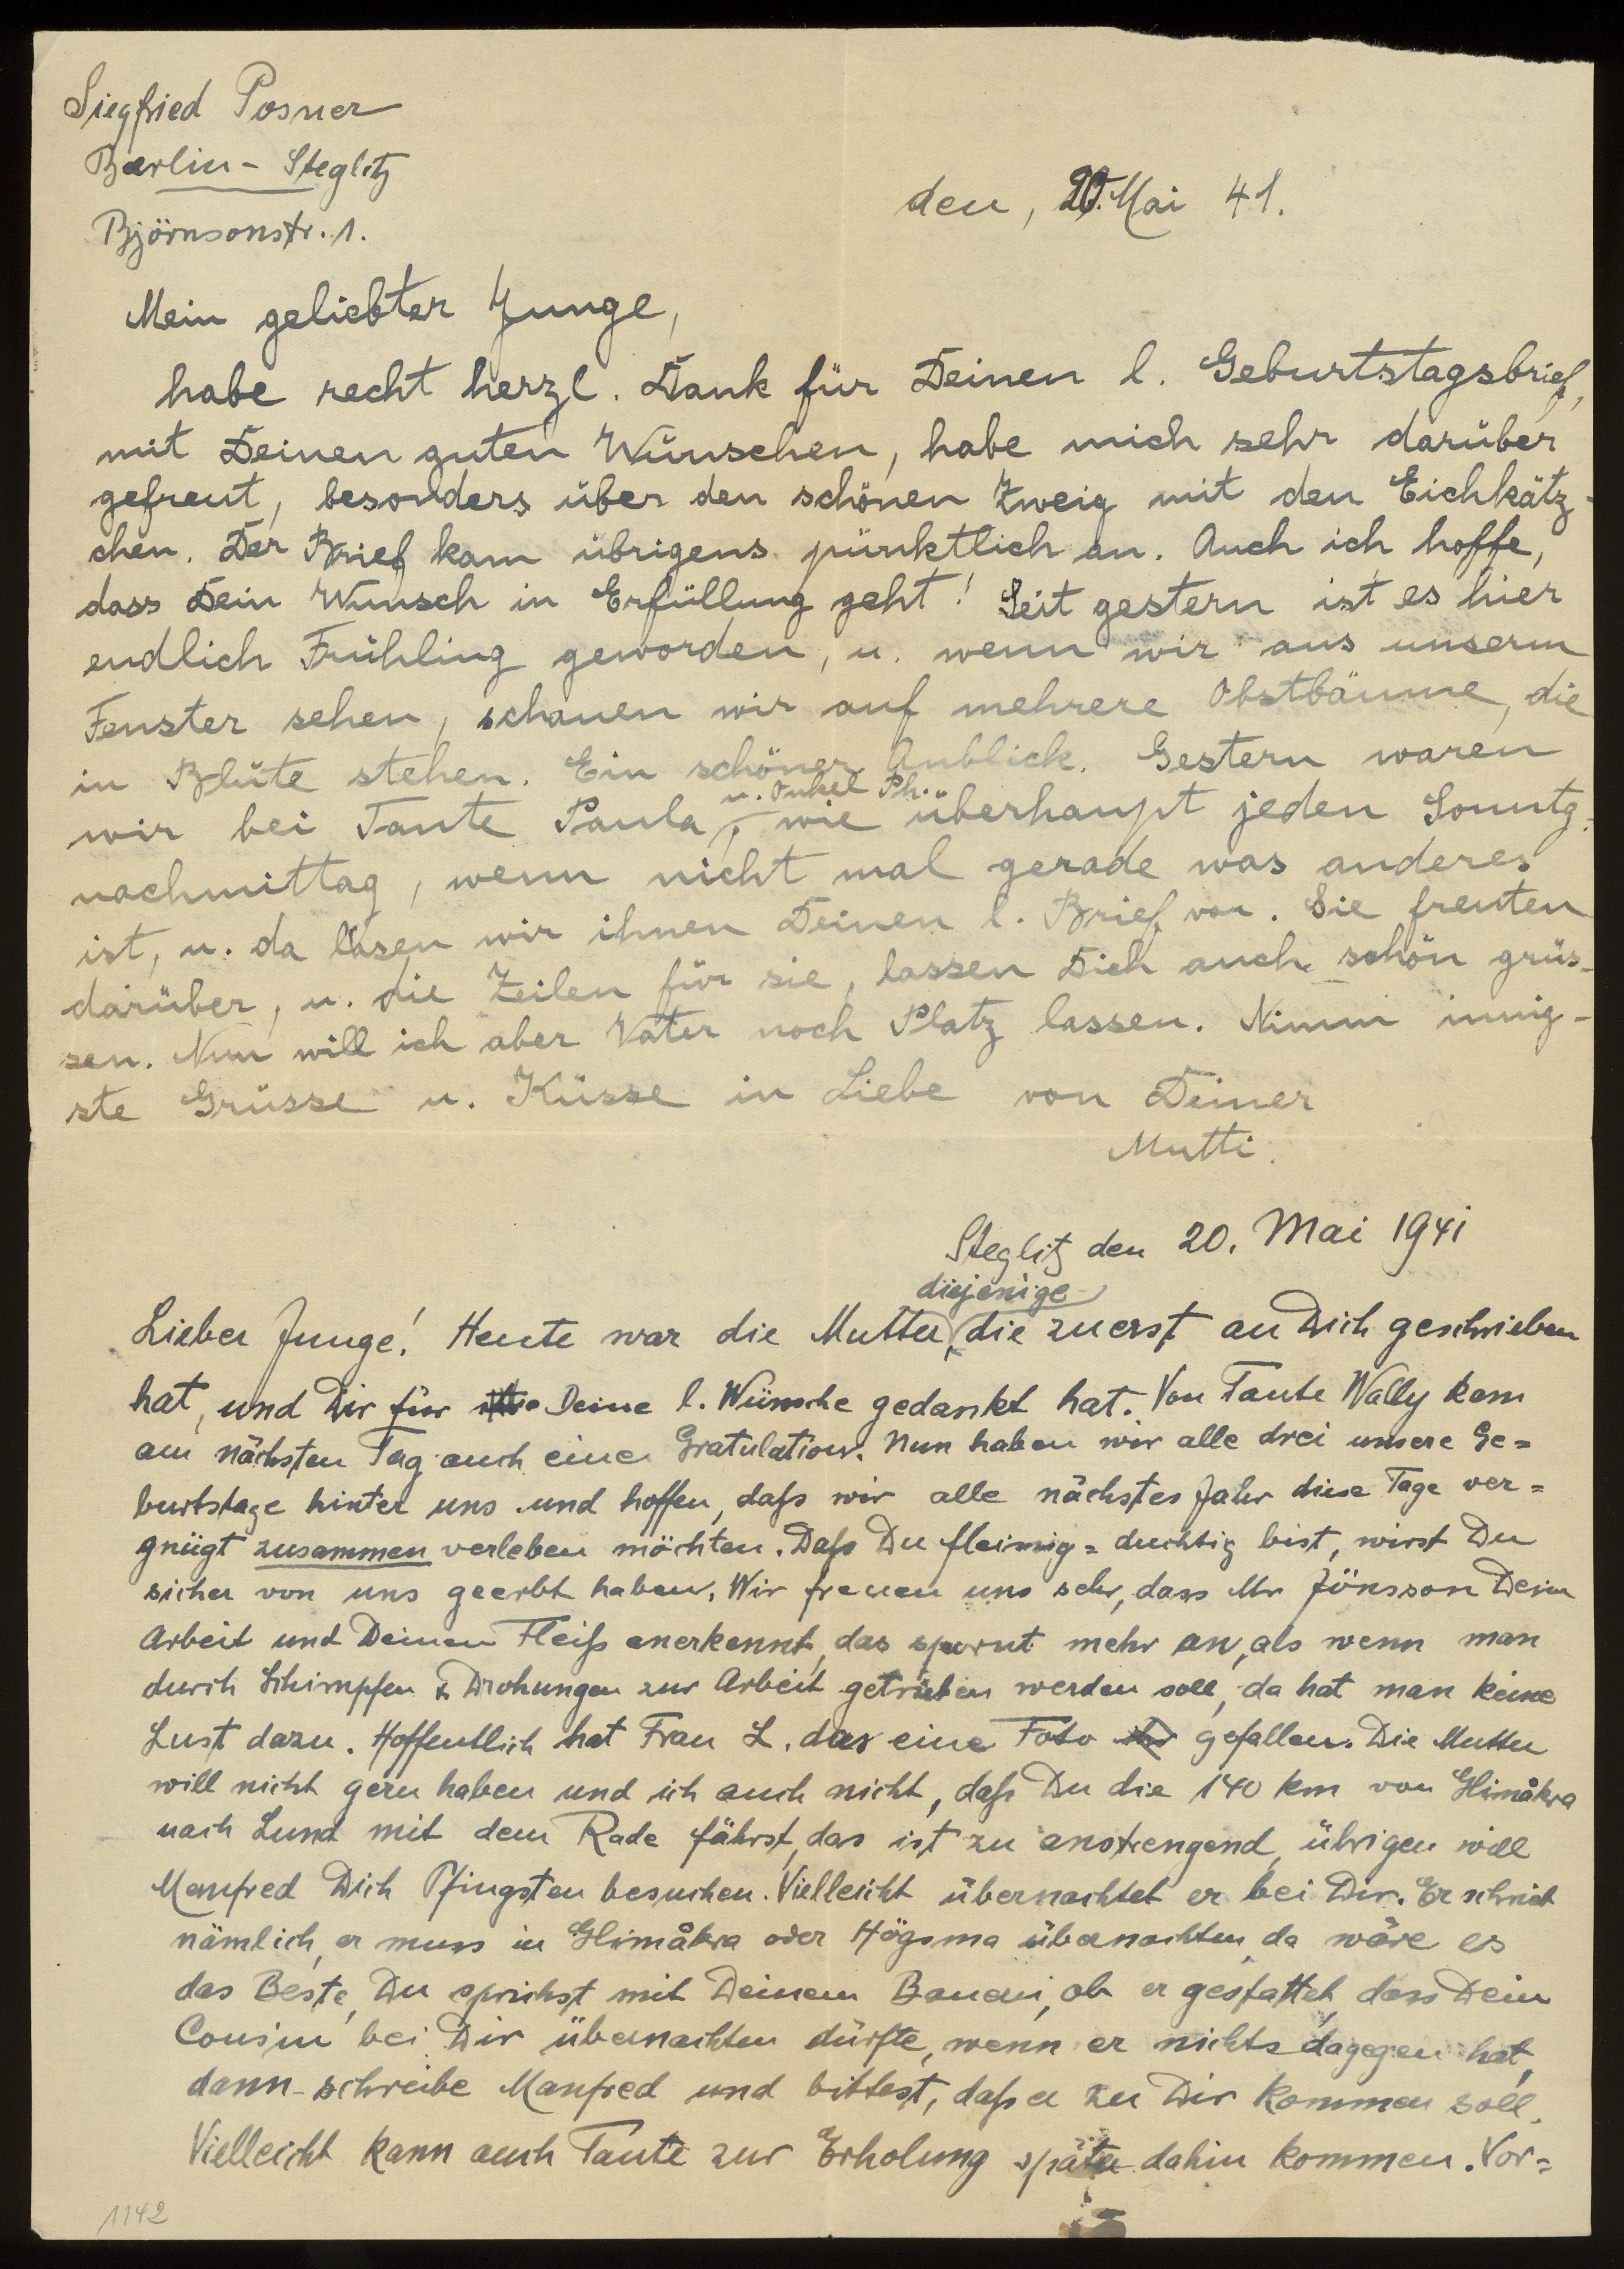 Siegfried Posner
Berlin - Steglitz
Björnsonstr. 1.
den, 20. Mai 41.
Mein geliebter Junge,
habe recht herzl. Dank für Deinen l. Geburtstagsbrief,
mit Deinen guten Wünschen, habe mich sehr darüber
gefreut, besonders über den schönen Zweig mit den Eichkätz-
chen. Der Brief kam übrigens pünktlich an. Auch ich hoffe,
dass Dein Wunsch in Erfüllung geht! Seit gestern ist es hier
endlich Frühling geworden, u. wenn wir aus unserm
Fenster sehen, schauen wir auf mehrere Obstbäume, die
in Blüte stehen. Ein schöner Anblick. Gestern waren
wir bei Tante Paula u. Onkel Ph., wie überhaupt jeden Sonntg.
nachmittag, wenn nicht mal gerade was anderes
ist, u. da lasen wir ihnen Deinen l. Brief vor. Sie freuten
darüber, u. die Zeilen für sie, lassen Dich auch schön grüs-
sen. Nun will ich aber Vater noch Platz lassen. Nimm innig-
ste Grüsse u. Küsse in Liebe von Deiner
Mutti.
Steglitz den 20. Mai 1941
Lieber Junge! Heute war die Mutter diejenige, die zuerst an Dich geschrieben
hat, und Dir für Deine l. Wünsche gedankt hat. Von Tante Wally kam
am nächsten Tag auch eine Gratulation. Nun haben wir alle drei unsere Ge=
burtstage hinter uns und hoffen, daß wir alle nächstes Jahr diese Tage ver=
gnügt zusammen verleben möchten. Daß Du fleissig = duchtig bist, wirst Du
sicher von uns geerbt haben. Wir freuen uns sehr, dass Mr Jönsson Dein
Arbeit und Deinen Fleiß anerkennt, das spornt mehr an, als wenn man
durch Schimpfen & Drohungen zur Arbeit getrieben werden soll, da hat man keine
Lust dazu. Hoffentlich hat Frau L. das eine Foto gefallen. Die Mutter
will nicht gern haben und ich auch nicht, daß Du die 140 km von Glimåkra
nach Lund mit dem Rade fährst, das ist zu anstrengend, übrigen will
Manfred Dich Pfingsten besuchen. Vielleicht übernachtet er bei Dir. Er schrieb
nämlich, er muss in Glimåkra oder Högsma übernachten, da wäre es
das Beste, Du sprichst mit Deinem Bauern, ob er gestattet, dass Dein
Cousin bei Dir übernachten dürfte, wenn er nichts dagegen hat,
dann schreibe Manfred und bittest, daß er zu Dir kommen soll.
Vielleicht kann auch Tante zur Erholung später dahin kommen. Vor=
1142